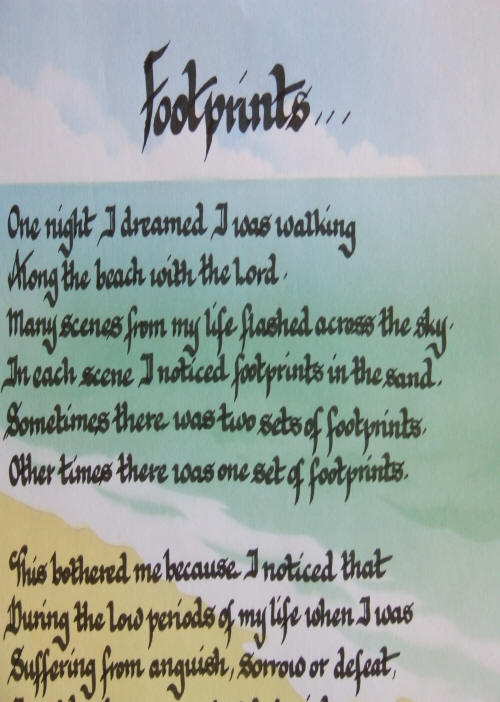 Footprints...
One night I dreamed I was walking
Along the beach with the Lord.
Many scenes from my life flashed across the sky.
In each scene I noticed footprints in the sand.
Sometimes there was two sets of footprints.
Other times there was one set of footprints.
This bothered me because I noticed that
During the low periods of my life when I was
Suffering from anguish, sorrow or defeat,